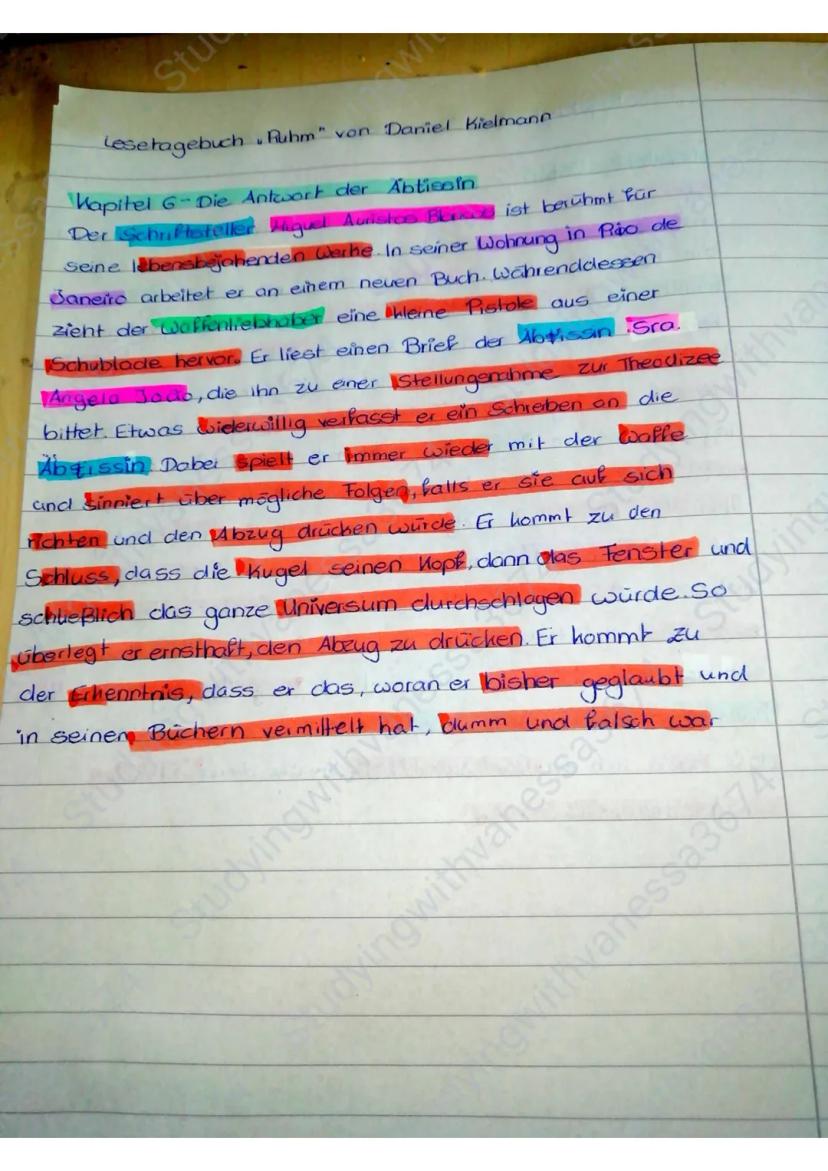 Lesetagebuch „Ruhm" von Daniel Kielmann
Kapitel 6 - Die Antwort der Äbtissin
Der Schriftsteller Miguel Auristos Blancos ist berühmt für
seine lebensbejahenden Werke. In seiner Wohnung in Rio de
Janeiro arbeitet er an einem neuen Buch. Währenddessen
zieht der Waffenliebhaber eine kleine Pistole aus einer
Schublade hervor. Er liest einen Brief der Äbtissin Sra.
Angela João, die ihn zu einer Stellungnahme zur Theodizee
bittet. Etwas widerwillig verfasst er ein Schreiben an die
Äbtissin. Dabei spielt er immer wieder mit der Waffe
und sinniert über mögliche Folgen, falls er sie auf sich
richten und den Abzug drücken würde. Er kommt zu den
Schluss, dass die Kugel seinen Kopf, dann das Fenster und
schließlich das ganze Universum durchschlagen würde. So
überlegt er ernsthaft, den Abzug zu drücken. Er kommt zu
der Erkenntnis, dass er das, woran er bisher geglaubt und
in seinen Büchern vermittelt hat, dumm und falsch war
Studyingwithvanessa3674